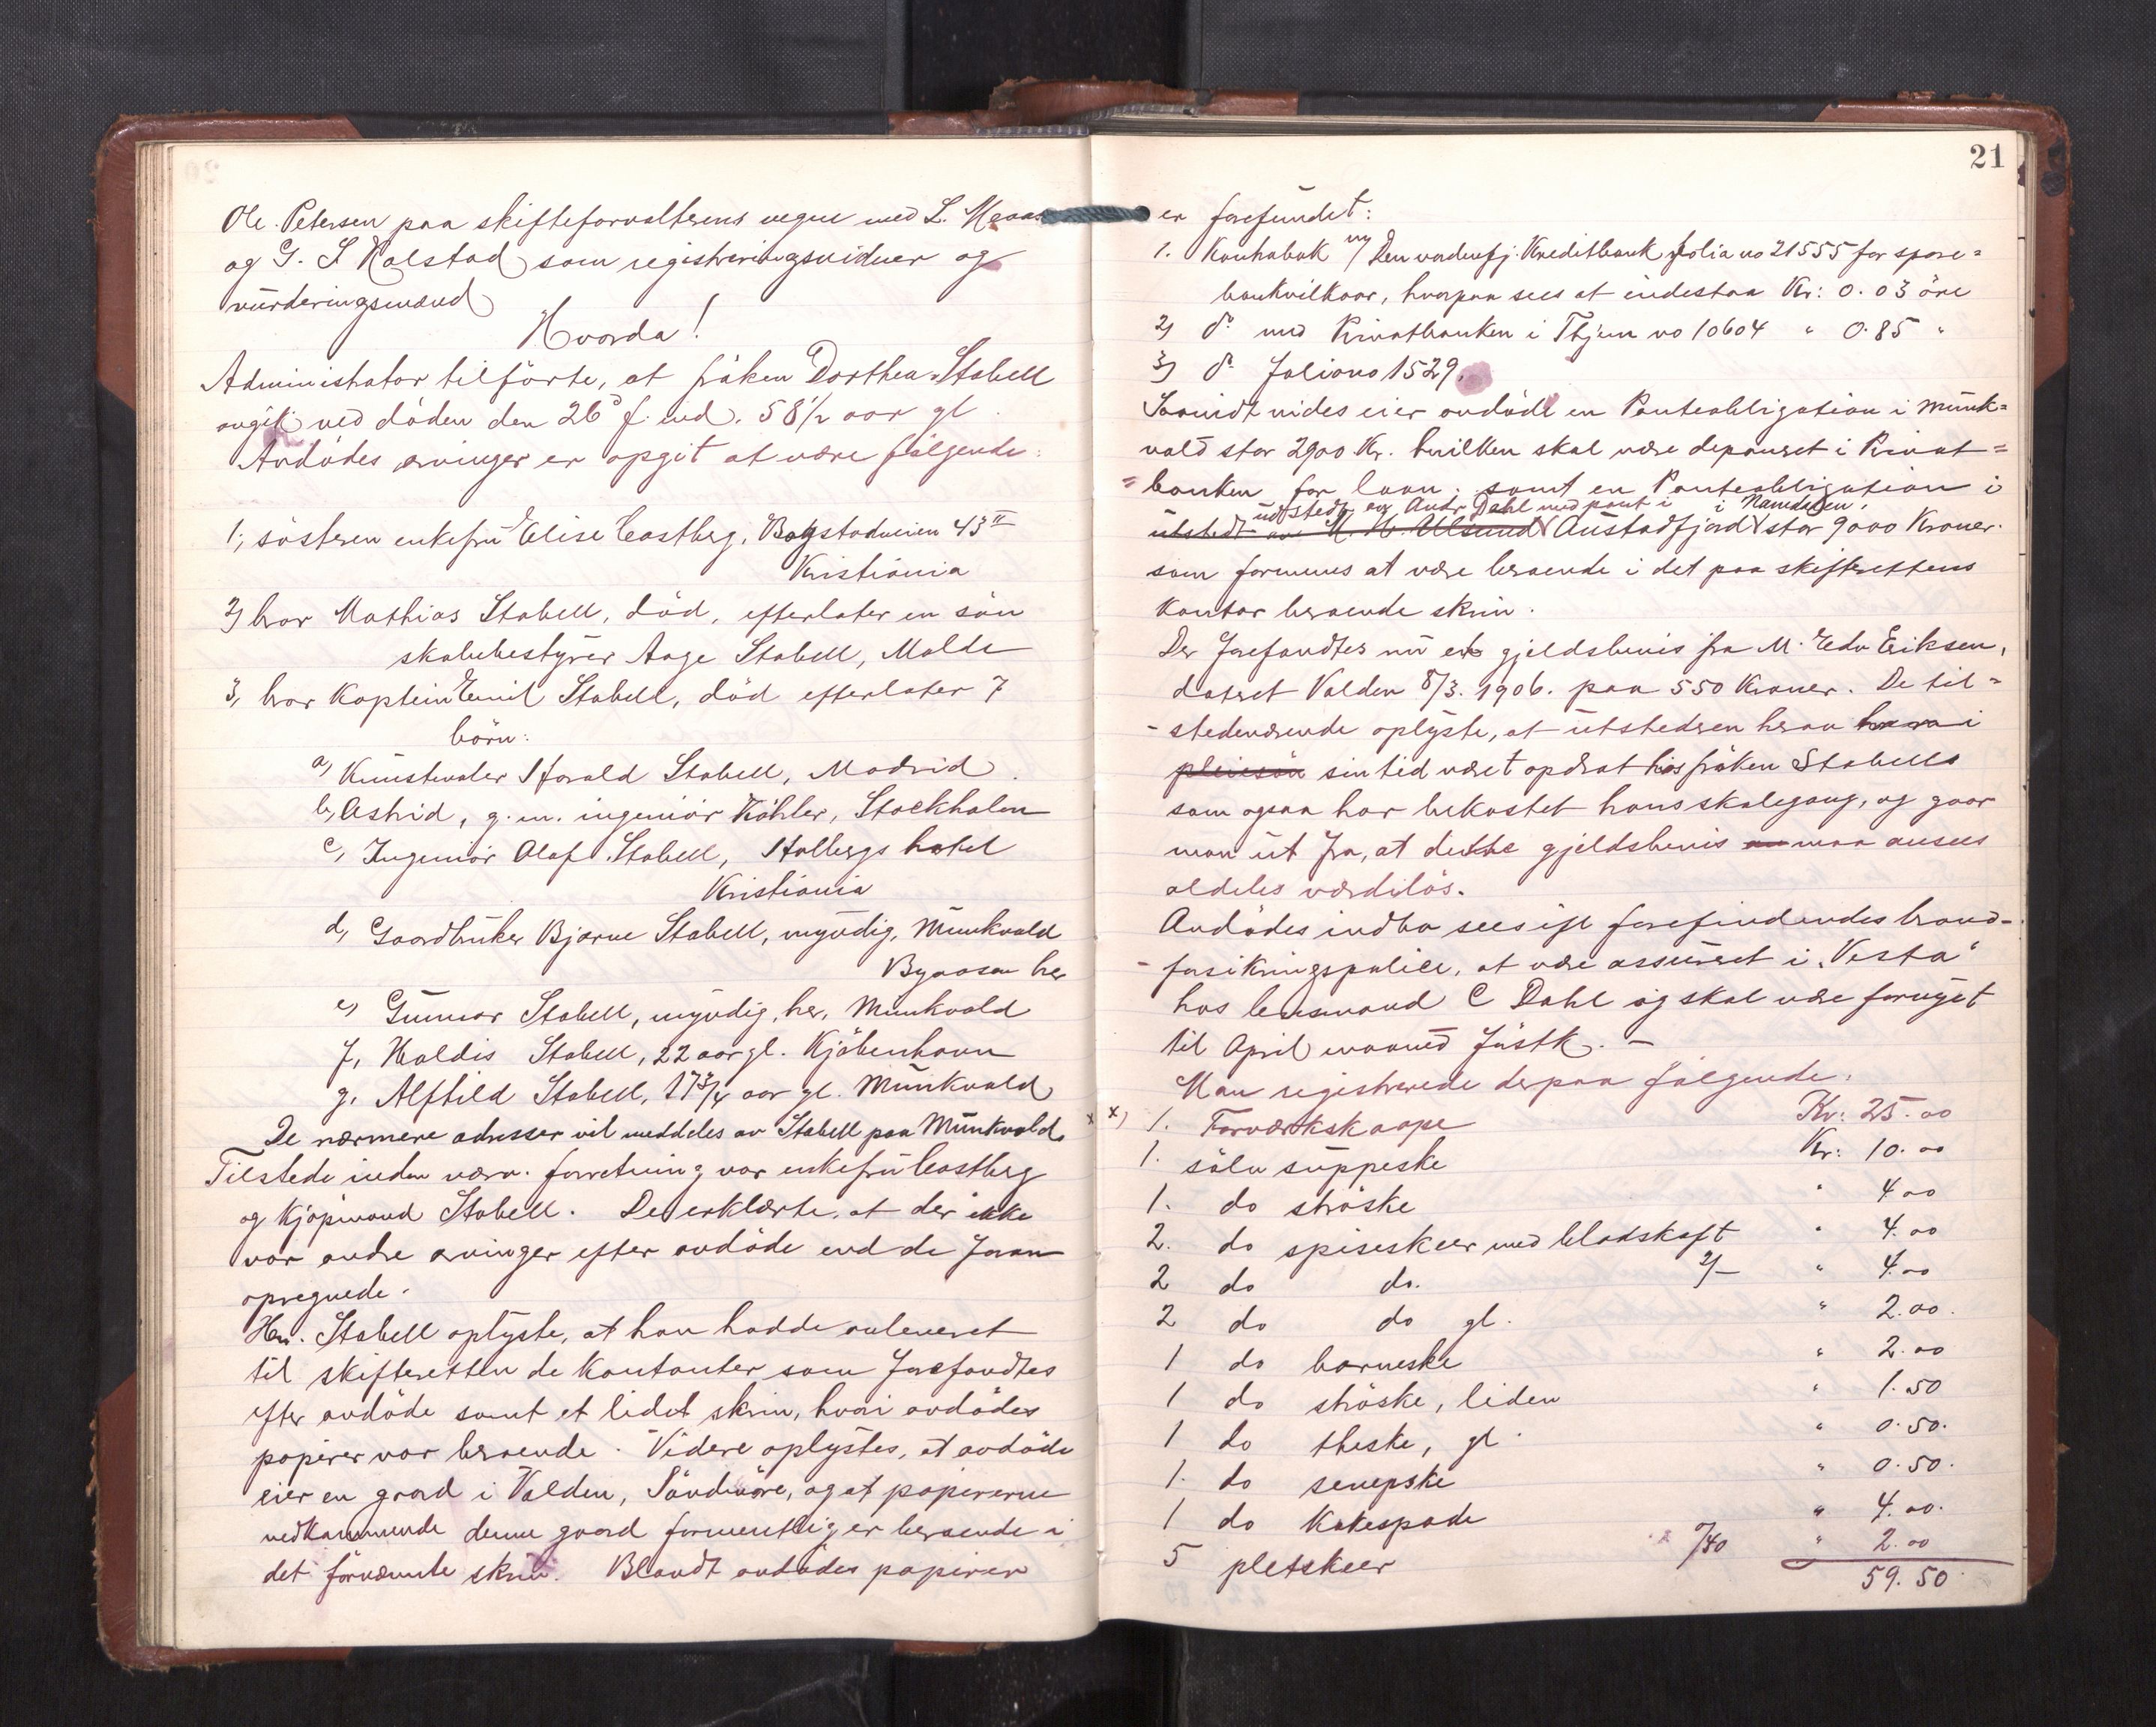 Ole. Petersen paa skifteforvalterens vegne med L. Moan
og G. S Kolstad som registreringsvidner og
vurderingsmænd
Hvorda!
Administrator tilførte, at frøken Dorthea Stabell
avgik ved døden den 26d f. md. 58 1/2 aar gl.
Avdødes arvinger er opgit at være følgende:
1, søsteren enkefru Elise Castberg, Bogstadveien 43 II
Kristiania
2) bror Mathias Stabell, död, efterlater en sön
skolebestyrer Aage Stabell, Molde
3, bror Kaptein Emil Stabell, död efterlater 7
börn:
a) Kunstmaler Harald Stabell, Madrid.
b, Astrid, g. m. ingeniör Köhler, Stockholm
c, Ingeniör Olaf Stabell, Holbergs hotel
Kristiania
d, Gaardbruker Bjarne Stabell, myndig, Munkvold
Byaasen her
e) Gunnar Stabell, myndig, her, Munkvold
f, Haldis Stabell, 22 aar gl. Kjöbenhavn
g. Alfhild Stabell, 17 3/4 aar gl. Munkvold
De nærmere adresser vil meddeles av Stabell paa Munkvold.
Tilstede under nærv. forretning var enkefru Castberg
og Kjöpmand Stabell. De erklærte, at der ikke
var andre arvinger efter avdöde end de foran
opregnede.
Hr. Stabell oplyste, at han hadde avleveret
til skifteretten de Kontanter som forefandtes
efter avdöde samt et lidet skrin, hvori avdödes
papirer var beroende. Videre oplystes, at avdöde
eier en gaard i Volden, Söndmöre, og at papirerne
vedkommende denne gaard formentlig er beroende i
det förnævnte skrin. Blandt avdödes papirer
21
er forefundet:
1. Kontrabok m/ Den nordenfj. Kreditbank folio no 21555 for spare=
bankvilkaar, hvorpaa sees at indestaa Kr: 0.03 öre
2) do med Privatbanken i Thjem no 10604 " 0.85 "
3) do Foliono 1529.
Saavidt vides eier avdöde en Panteobligation i Munk=
vold stor 2900 Kr. hvilken skal være deponeret i Privat=
=banken for laan. samt en Panteobligation i
udstedt av Andr. Dahl med pant i i Namdalen.
utstedt av M. H. Ulsund Austadfjord stor 9000 Kroner.
som formenes at være beroende i det paa skifterettens
Kontor beroende skrin.
Der forefandtes nu et gjeldsbevis fra M. Edv Eriksen,
datert Volden 8/3. 1906. paa 550 Kroner. De til=
-stedeværende oplyste, at utstederen herav
pleiesön sin tid været opdrat hos fröken Stabell
som ogsaa har bekostet hans skolegang, og gaar
man ut fra, at dette gjeldsbevis maa ansees
aldeles værdilös.
Avdödes indbo sees ifl forefindendes brand-
-forsikringspolice, at være assureret i "Vesta"
hos lensmand C Dahl og skal være fornyet
til April maaned förstk. -
Man registrerede derpaa følgende.
x x) 1. Forværkskaape Kr: 25.00
1. sölv suppeske Kr: 10.00
1. do ströske " 4.00
2. do spiseskeer med bladskaft " 4.00
2 do do. 2/- " 4.00
2 do do gl. " 2.00.
1 do barneske " 2.00
1 do ströske, liden " 1.50
1 do theske, gl. " 0.50.
1. do senepske " 0.50.
1 do Kakespade " 4.00.
5 pletskeer /40 " 2.00
59.50